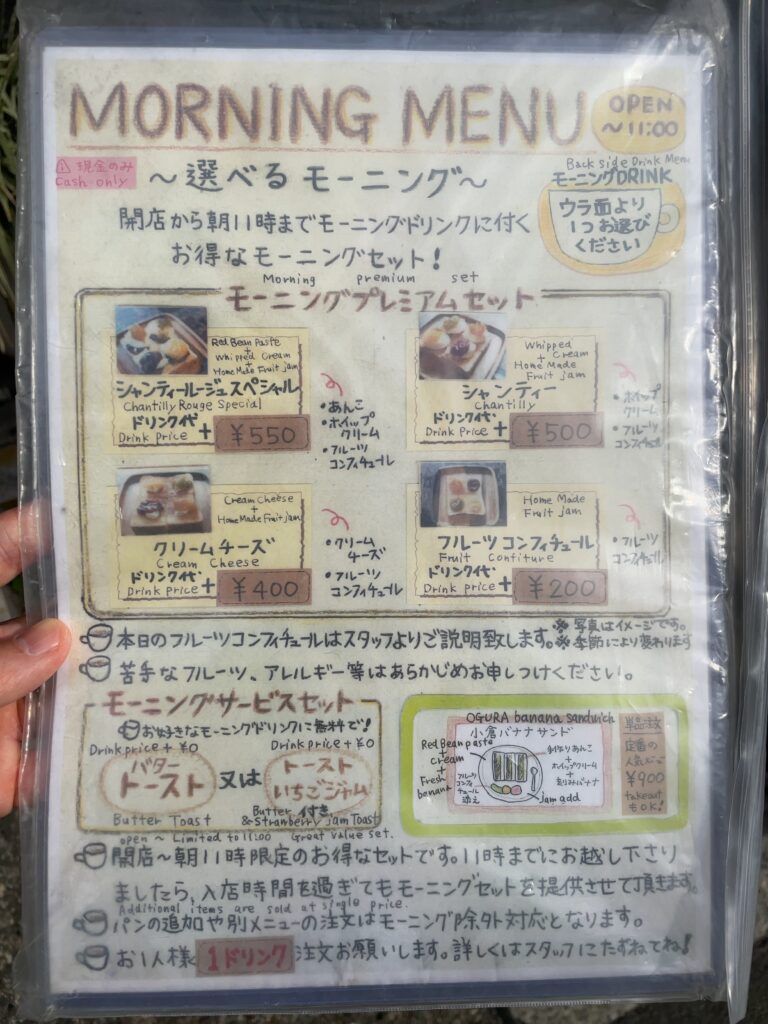 MORNING MENU
OPEN
~11:00
① 現金のみ
Cash only
～選べるモーニング～
Back side Drink Menu
モーニングDRINK
ウラ面より
1つお選び
ください
開店から朝11時までモーニングドリンクに付く
お得なモーニングセット!
Morning premium set
モーニングプレミアムセット
Red Bean Paste
+
Whipped Cream
+
Home Made Fruit jam
シャンティールージュスペシャル
Chantilly Rouge Special
ドリンク代
Drink price + ¥550
・あんこ
・ホイップ
クリーム
・フルーツ
コンフィチュール
Whipped
+ Cream
Home Made
Fruit jam
シャンティー
Chantilly
ドリンク代
Drink price + ¥500
・ホイップ
クリーム
・フルーツ
コンフィチュール
Cream Cheese
+
Home Made Fruit jam
クリームチーズ
Cream Cheese
ドリンク代
Drink price + ¥400
・クリーム
チーズ
・フルーツ
コンフィチュール
Home Made
Fruit jam
フルーツコンフィチュール
Fruit Confiture
ドリンク代
Drink price + ¥200
・フルーツ
コンフィチュール
本日のフルーツコンフィチュールはスタッフよりご説明致します。
※写真はイメージです。
※季節により変わります
苦手なフルーツ、アレルギー等はあらかじめお申しつけください。
モーニングサービスセット
お好きなモーニングドリンクに無料で!
Drink price + ¥0
バター
トースト
Butter Toast
又は
Drink price + ¥0
トースト
いちごジャム
付き
Butter
& Strawberry jam Toast
OGURA banana sandwich
小倉バナナサンド
Red Bean paste
+
Cream
+
Fresh
banana
フルーツ
コンフィ
チュール
添え
手作りあんこ
+
ホイップクリーム
+
刻みバナナ
jam add
単品注文
定番の
人気メニュー
¥900
takeout
もOK!
open ~ Limited to 11:00 Great value set.
開店～朝11時限定のお得なセットです。11時までにお越し下さり
ましたら、入店時間を過ぎてもモーニングセットを提供させて頂きます。
Additional items are sold at single price.
パンの追加や別メニューの注文はモーニング除外対応となります。
お1人様1ドリンク注文お願いします。詳しくはスタッフにたずねてね!